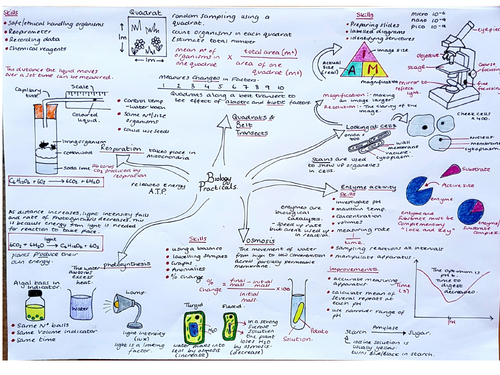 Skills
• Safe/ethical handling organisms
• Respirometer
• Recording data
• Chemical reagents
The distance the liquid moves
over a set time can be measured.
Capillary
tube
Scale
Coloured
liquid.
living organism
cottonwool
soda lime
Absorbs
CO2 produced by
respiration
C6H12O6 + 6O2 → 6CO2 + 6H2O
• Control temp
- water bath
• Same No/size
organisms
• Could use seeds
Respiration
takes place in
mitochondria
released energy
A.T.P.
Quadrat
1m
1m
random sampling using a
quadrat.
Count organisms in each quadrat
Estimate total number
mean no of
organisms in
one quadrat
×
total area (m²)
area of one
quadrat (m²)
Measures Changes in Factors
1 2 3 4 5 6 7 8 9 10
Quadrats along a belt transect to
see effect of abiotic and biotic factors
Quadrats &
Belt
Transects
Biology
Practicals
Skills
• Preparing slides
• labelled diagrams
• identifying structures
milli 10⁻³
nano 10⁻⁹
pico 10⁻¹²
Image size
Actual
size
(real)
I
A M
magnification
eyepiece
objective
stage
mirror
Coarse
focus
Fine
focusing
Magnification - making
an image larger
Resolution - The
of the image
Looking at cells
onion
wall
membrane
vacuole
cytoplasm
Cheek cells
Nucleus
membrane
cytoplasm
Stains are used
to show up organelles
in cells.
Enzyme activity
enzymes are
biological
catalysts.
Speed up rate
but don't used up
in reaction
Skills
• investigate pH
• maintain temp.
• Concentration
• volume
• measuring rate
• time
• Sampling reactions at intervals
• manipulate apparatus
Substrate
Active site
enzyme
Enzyme and
Substrate must be
complementary
"Lock and key"
enzyme/
substrate
Complex
Improvements
• accurate measuring
apparatus
• calculate mean of
several repeat at
each pH
• use narrower range
of pH
Time
(s)
The optimum
pH is
time to
digest
decreased
pH
Amylase
Starch → Sugar.
iodine solution is
usually yellow
turns blue/black in starch.
As distance increases, light intensity falls
and rate of photosynthesis decreases. This is
because energy from light is needed
for reaction to take place
light
6CO2 + 6H2O → C6H12O6 + 6O2
plants produce their
own energy.
photosynthesis
The water
absorbs
excess
heat.
Algal balls
in indicator
water
Lamp
light intensity
(lux)
light is a limiting
factor
• Same No balls
• Same volume indicator
• Same time
Skills
• using a balance
• labelling samples
• Graphs
• Anomalies
• % change
OSMOSIS
The movement of water
from high to low concentration
across partially permeable
membrane.
%
Change = final - initial
mass mass
Initial
mass
× 100
Turgid
Flaccid
water moves into
cell by osmosis
(increase)
In a strong
sucrose
solution
the plant
loses H2O
by osmosis
(decrease)
Potato
Solution.